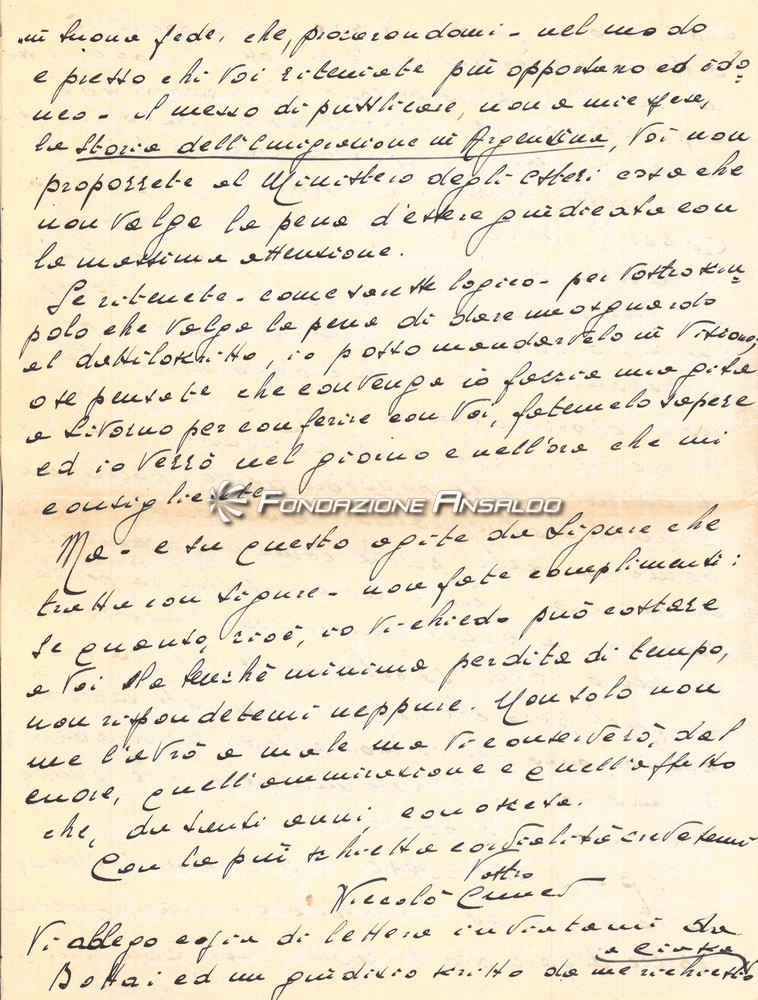 in buona fede, che, procurandomi - nel modo
e presso chi Voi riteniate più opportuno ed ido=
neo - il mezzo di pubblicare, non a mie spese,
la Storia dell'Emigrazione in Argentina, Voi non
proporrete al Ministero degli Esteri cosa che
non valga la pena d'essere giudicata con
la massima attenzione.
Se ritenete - come sarebbe logico - per Vostro scru=
polo che valga la pena di dare uno sguardo
al dattiloscritto, io posso mandarvelo in visione;
o se pensate che convenga io faccia una gita
a Livorno per conferire con Voi, fatemelo sapere
ed io verrò nel giorno e nell'ora che mi
consiglierete.
FONDAZIONE ANSALDO
Ma - e su questo agite da Ligure che
tratta con Ligure - non fate complimenti:
se quanto, cioè, io Vi chiedo può costare
a Voi la benché minima perdita di tempo,
non rispondetemi neppure. Non solo non
me l'avrò a male ma Vi conserverò, dal
cuore, quell'ammirazione e quell'affetto
che, da tanti anni, conoscete.
Con la più schietta cordialità credetemi
Vostro
Niccolò Cuneo
Vi allego copia di lettera inviatami da
Bottai ed un giudizio scritto da me richiesto